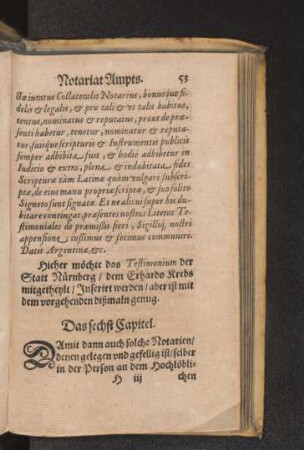 Notariat Ampts. 53
ctæ iuratus Collateralis Notarius, bonusque fi-
delis & legalis, & pro tali & vt talis habitus,
tentus, nominatus & reputatus, prout de præ-
senti habetur, tenetur, nominatur & reputa-
tur, suisque scripturis & Instrumentis publicis
semper adhibita fuit, & hodie adhibetur in
Iudicio & extra, plena & indubitata, fides
Scripturæ tàm Latinæ quàm vulgari subscri-
ptæ, de eius manu propria scriptæ, & suo solito
Signeto sunt signatæ. Et ne alicui super his du-
bitare contingat, præsentes nostras Literas Te-
stimoniales de præmissis fieri, Sigilliq; nostri
appensione iussimus & fecimus communiri.
Datis Argentinæ, &c.
Hieher möcht das Testimonium der
Statt Nürnberg / dem Erhardo Krebs
mitgetheylt / Inserirt werden / aber ist mit
dem vorgehenden dißmaln genug.
Das sechst Capitel.
DAmit dann auch solche Notarien /
denen gelegen vnd gefellig ist / selber
in der Person an dem Hochlöbli-
H iij chen